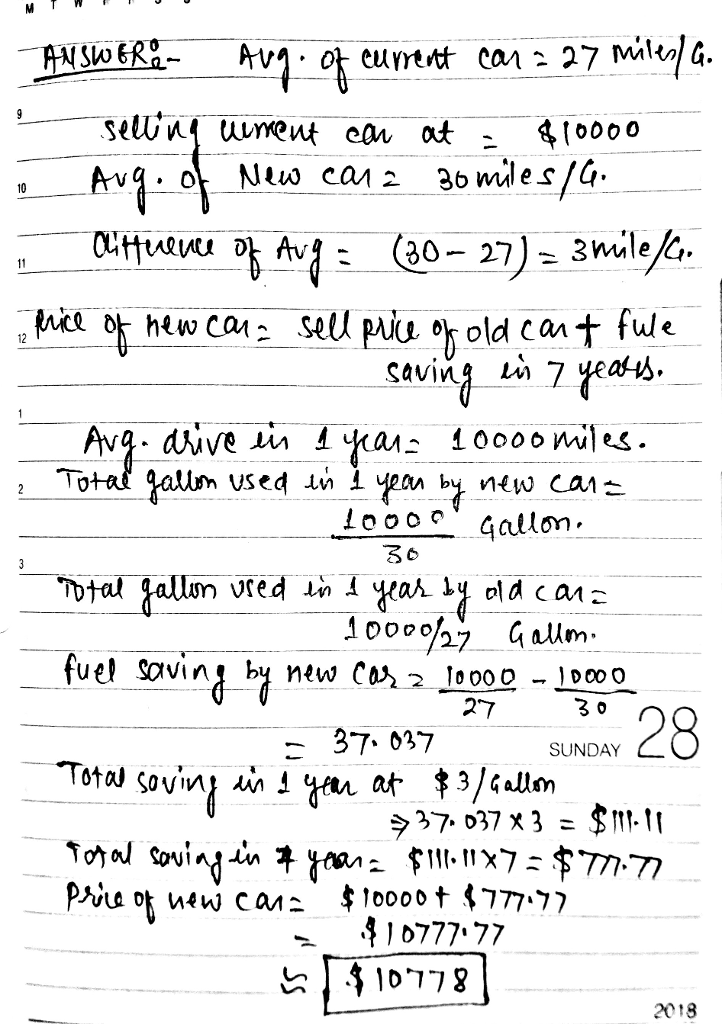 M T W F S S
ANSWER:- Avg. of current car = 27 miles/G.
9
selling current car at = $10000
10 Avg. of New car = 30 miles/G.
11 Difference of Avg = (30 - 27) = 3 mile/G.
12 Price of new car = sell price of old car + fule
saving in 7 years.
1
Avg. drive in 1 year = 10000 miles.
2 Total gallon used in 1 year by new car =
10000/30 Gallon.
3
Total gallon used in 1 year by old car =
10000/27 Gallon.
fuel saving by new car = 10000/27 - 10000/30
= 37.037 SUNDAY 28
Total saving in 1 year at $3/Gallon
⇒ 37.037 x 3 = $111.11
Total saving in 7 year = $111.11 x 7 = $777.77
Price of new car = $10000 + $777.77
= $10777.77
≈ $10778
2018